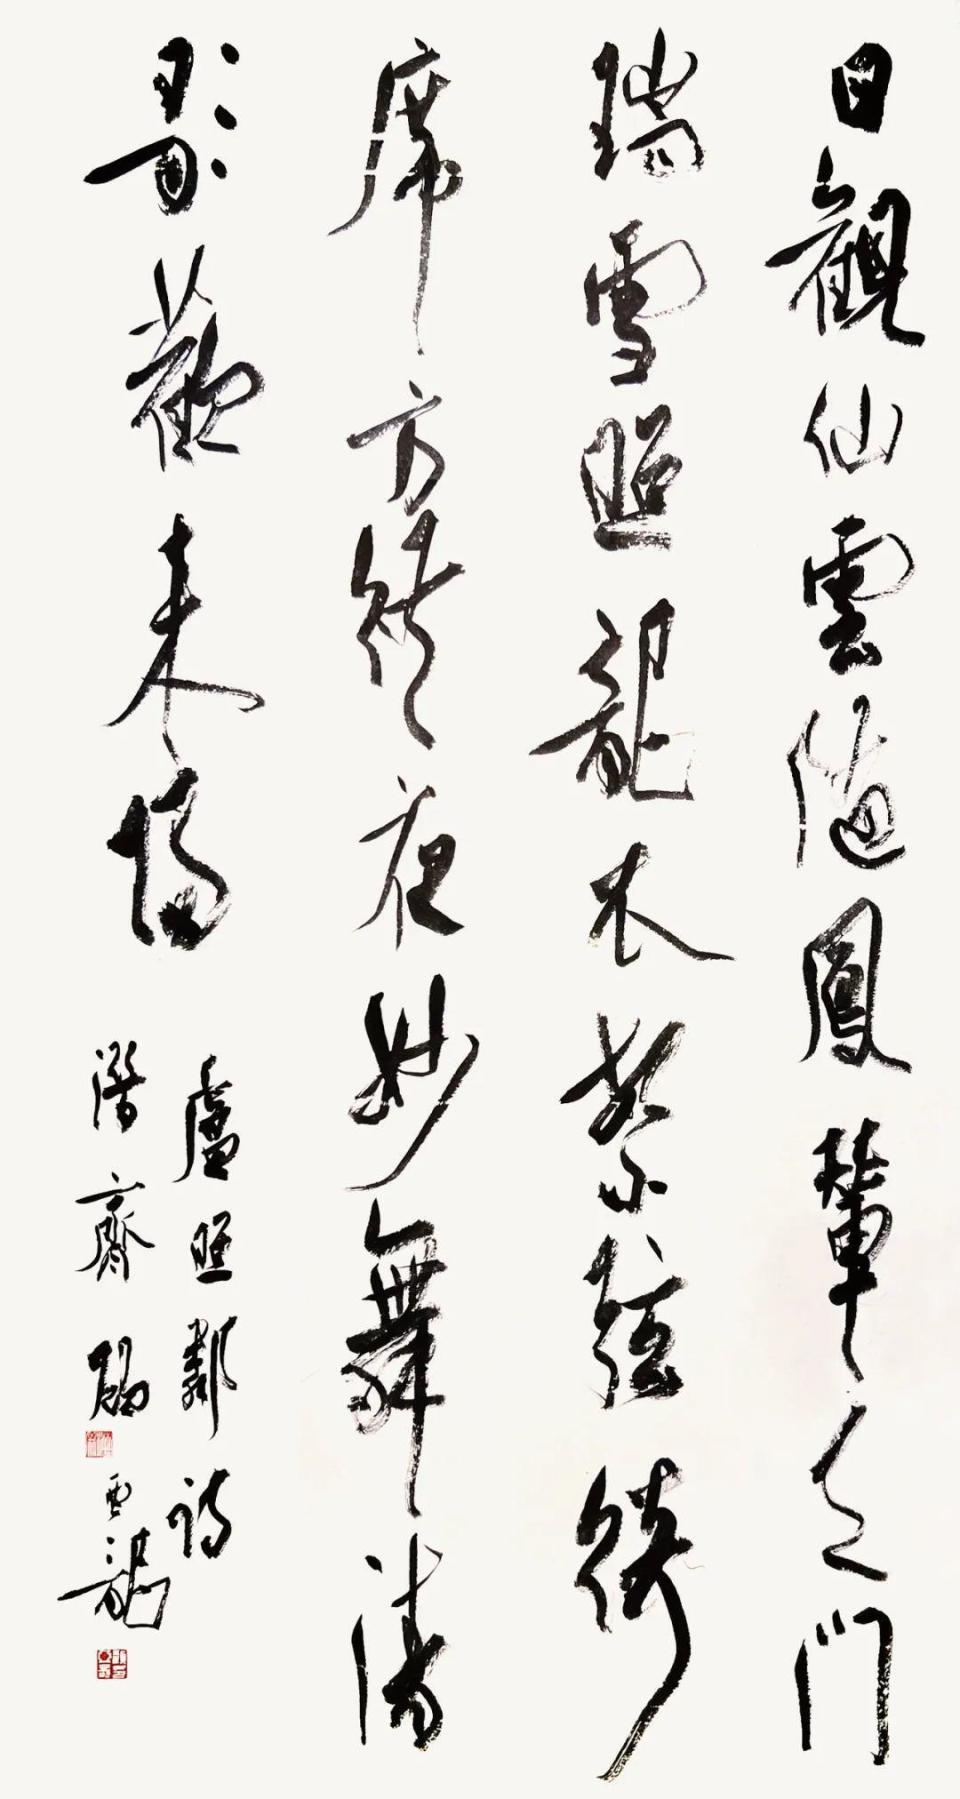 日觀仙雲隨鳳輦天門
瑞雪照龍衣繁弦綺
席方終夜妙舞清
歌歡未歸
盧照鄰詩
潛齋雲龍